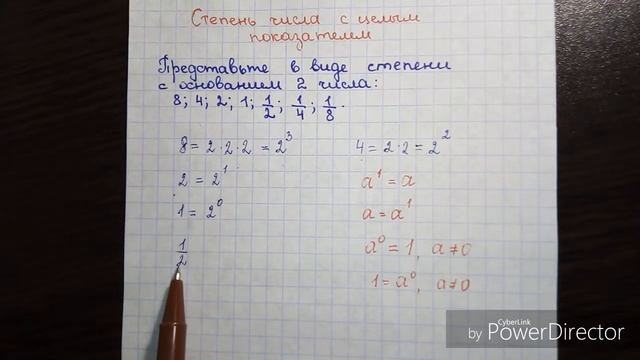 Степень числа с целым
показателем
Представьте в виде степени
с основанием 2 числа:
8; 4; 2; 1; 1/2; 1/4; 1/8.
8 = 2 · 2 · 2 = 2³ 4 = 2 · 2 = 2²
2 = 2¹ a¹ = a
1 = 2⁰ a = a¹
1/2 a⁰ = 1, a ≠ 0
1 = a⁰, a ≠ 0
CyberLink
by PowerDirector